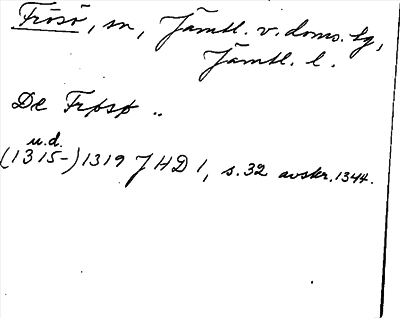 Frösö, sn, Jämtl. v. doms. tg,
Jämtl. l.
De Frøsø ..
u.d.
(1315-) 1319 JHD 1, s. 32 avskr. 1344.